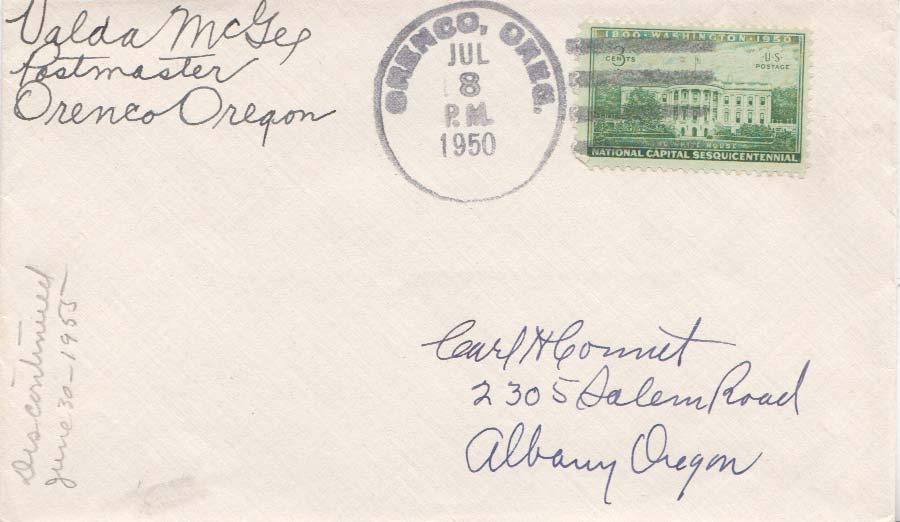 Valda McGee
Postmaster
Orenco Oregon
ORENCO, OREG.
JUL
8
P.M.
1950
1800·WASHINGTON·1950
3
CENTS
U·S·
POSTAGE
THE WHITE HOUSE
NATIONAL CAPITAL SESQUICENTENNIAL
Discontinued
June 30-1955
Carl H Connet
2305 Salem Road
Albany Oregon